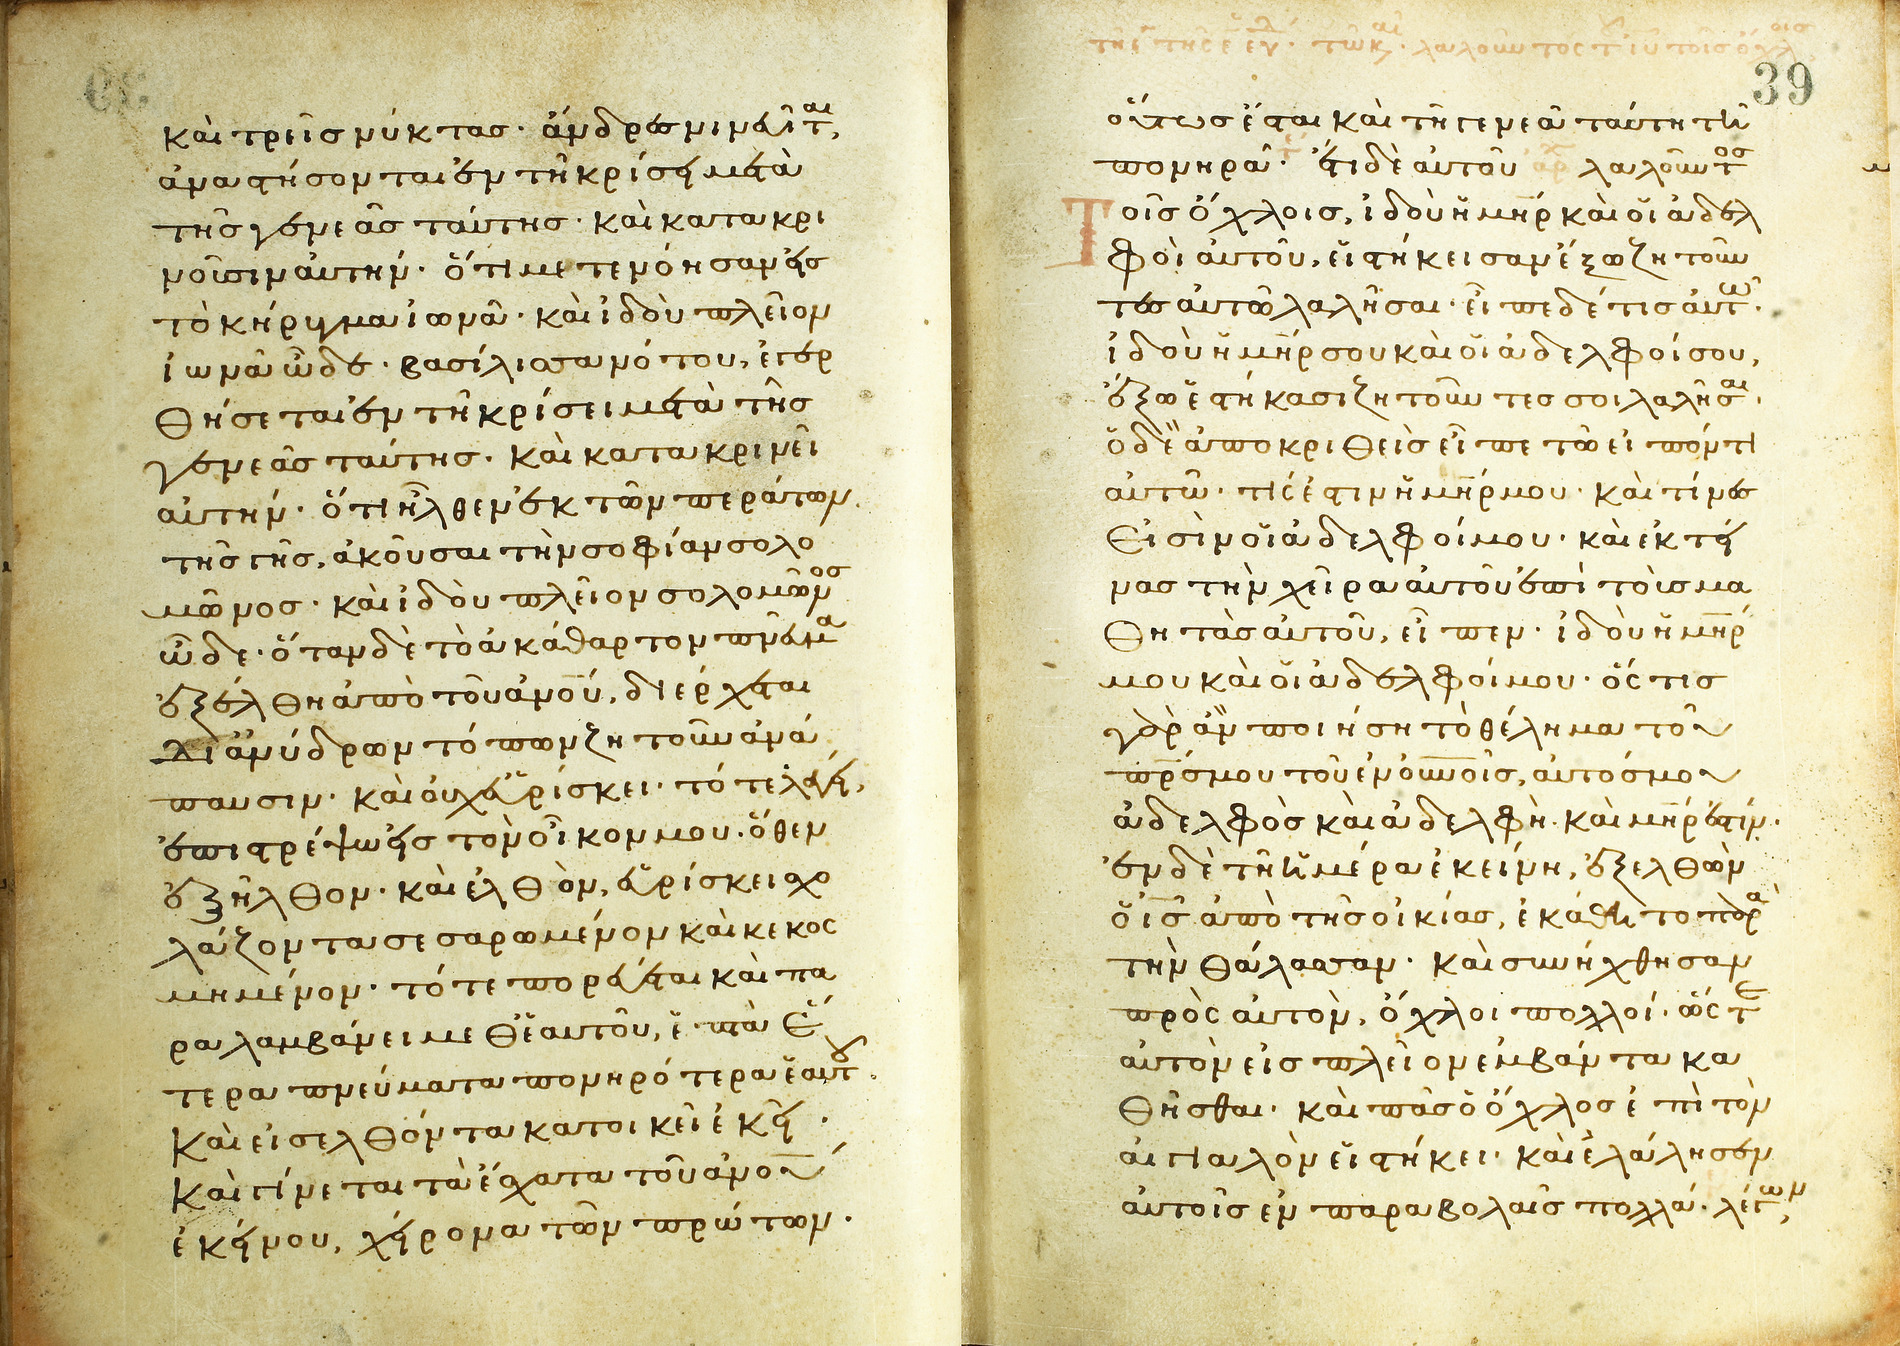 καὶ τρεῖς νύκτας· ἄνδρες νινευῖται,
ἀναστήσονται ἐν τῆ κρίσει μετὰ
τῆς γενεᾶς ταύτης· καὶ κατακρι
νοῦσιν αὐτήν· ὅτι μετενόησαν εἰς
τὸ κήρυγμα ἰωνᾶ· καὶ ἰδοὺ πλεῖον
ἰωνᾶ ὧδε· βασίλισσα νότου, ἐγερ
θήσεται ἐν τῆ κρίσει μετὰ τῆς
γενεᾶς ταύτης· καὶ κατακρινεῖ
αὐτήν· ὅτι ἦλθεν ἐκ τῶν περάτων
τῆς γῆς, ἀκοῦσαι τὴν σοφίαν σολο
μῶνος· καὶ ἰδοὺ πλεῖον σολομῶνος
ὧδε· ὅταν δὲ τὸ ἀκάθαρτον πνεῦμα
ἐξέλθη ἀπὸ τοῦ ἀνου, διέρχεται
δι ἀνύδρων τόπων ζητοῦν ἀνά
παυσιν· καὶ οὐχ εὑρίσκει· τότε λέγει,
ἐπιστρέψω εἰς τὸν οἶκον μου· ὅθεν
ἐξῆλθον· καὶ ἐλθὸν, εὑρίσκει σχο
λάζοντα σεσαρωμένον καὶ κεκοσ
μημένον· τότε πορεύεται καὶ πα
ραλαμβάνει μεθ ἑαυτοῦ, ἑπτὰ ἕ
τερα πνεύματα πονηρότερα ἑαυτοῦ.
Καὶ εἰσελθόντα κατοικεῖ ἐκεῖ·
Καὶ γίνεται τὰ ἔσχατα τοῦ ἀνου
ἐκείνου, χείρονα τῶν πρώτων·
39
οὕτως ἔσται καὶ τῆ γενεᾶ ταύτη τῆ
πονηρᾶ· ἔτι δὲ αὐτοῦ λαλοῦντος
Τοῖς ὄχλοις, ἰδοὺ ἡ μηρ καὶ οἱ ἀδελ
φοὶ αὐτοῦ, εἱστήκεισαν ἔξω ζητοῦν
τες αὐτῶ λαλῆσαι· εἶπε δέ τις αὐτῶ·
ἰδοὺ ἡ μηρ σου καὶ οἱ ἀδελφοί σου,
ἔξω ἑστήκασι ζητοῦντες σοι λαλῆσαι·
ὁ δὲ ἀποκριθεὶς εἶπε τῶ εἰπόντι
αὐτῶ· τίς ἐστιν ἡ μηρ μου· καὶ τίνες
εἰσὶν οἱ ἀδελφοί μου· καὶ ἐκτεί
νας τὴν χεῖρα αὐτοῦ ἐπὶ τοὺς μα
θητὰς αὐτοῦ, εἶπεν· ἰδοὺ ἡ μηρ
μου καὶ οἱ ἀδελφοί μου· ὅστις
γὰρ ἂν ποιήση τὸ θέλημα τοῦ
πρς μου τοῦ ἐν οὐνοῖς, αὐτός μου
ἀδελφὸς καὶ ἀδελφὴ καὶ μηρ ἐστίν·
ἐν δὲ τῆ ἡμέρα ἐκείνη, ἐξελθὼν
ὁ ις ἀπὸ τῆς οἰκίας, ἐκάθητο παρὰ
τὴν θάλασσαν· καὶ συνήχθησαν
πρὸς αὐτὸν, ὄχλοι πολλοί· ὥστε
αὐτὸν εἰς πλεῖον ἐμβάντα κα
θῆσθαι· καὶ πᾶς ὁ ὄχλος ἐπὶ τὸν
αἰγιαλὸν εἱστήκει· καὶ ἐλάλησεν
αὐτοῖς ἐν παραβολαῖς πολλά· λέγων,